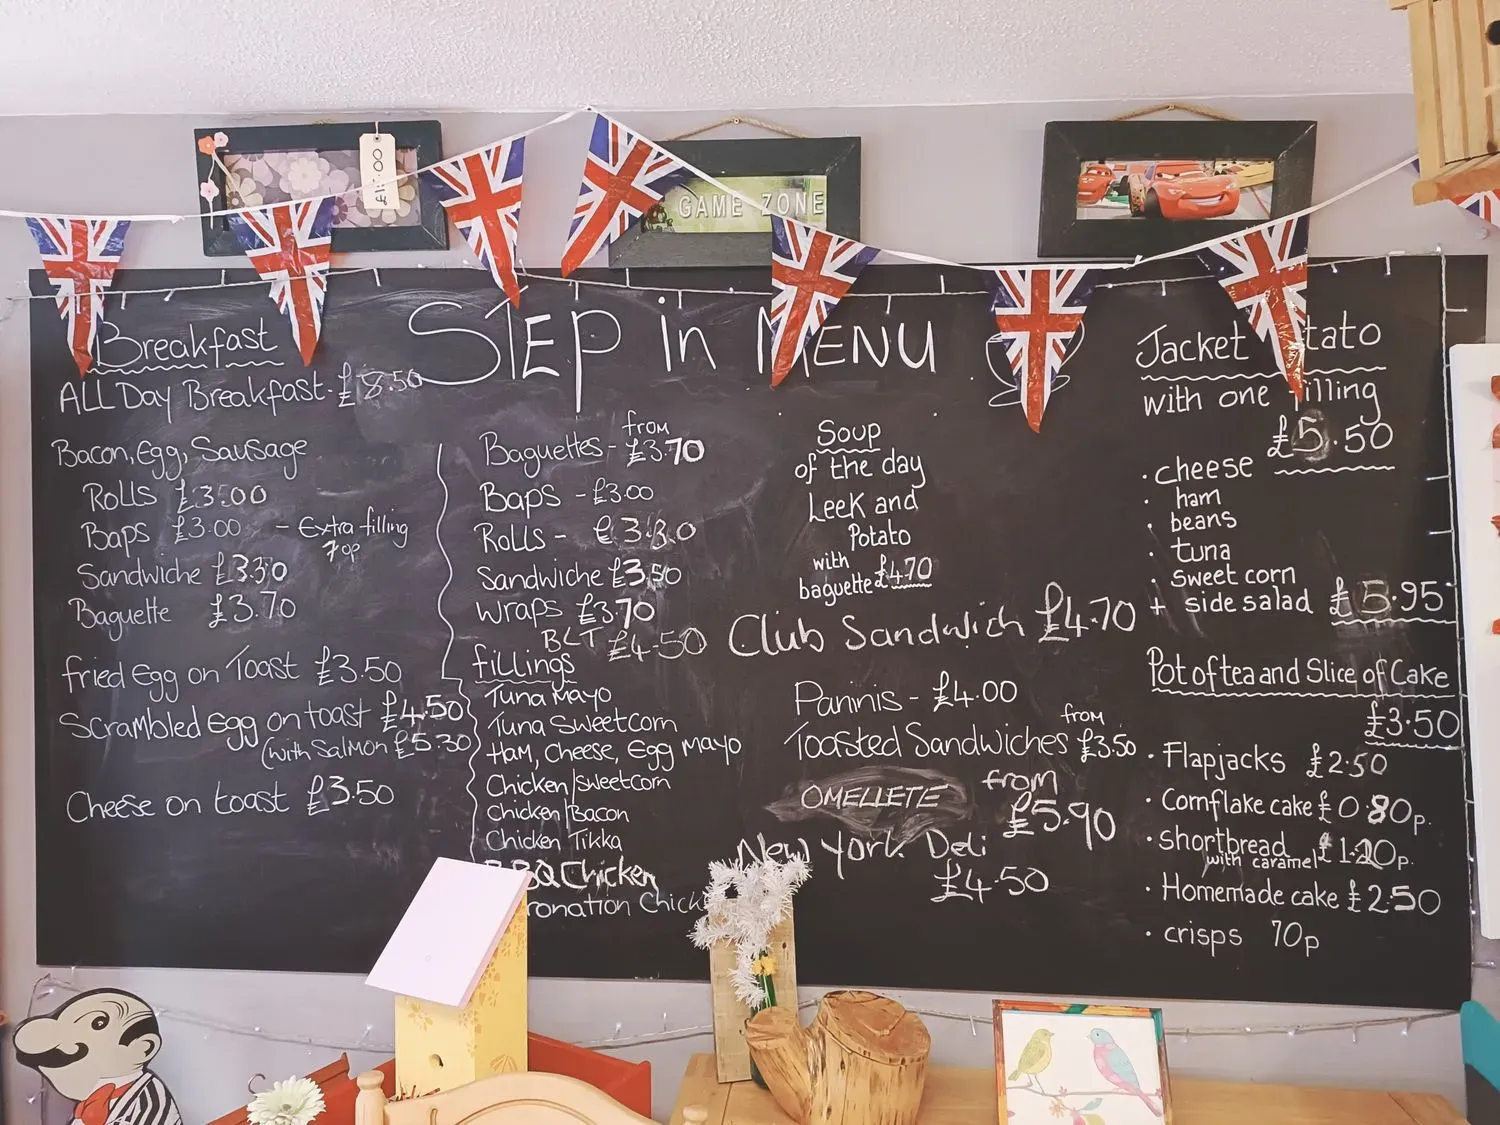 £12.00
GAME ZONE
STEP in MENU
Breakfast
ALL DAY Breakfast - £8.50
Bacon, Egg, Sausage
ROLLS £3.00
Baps £3.00 - Extra filling
70p
Sandwiche £3.30
Baguette £3.70
fried Egg on Toast £3.50
Scrambled egg on toast £4.50
(with Salmon £5.30
Cheese on toast £3.50
from
Baguettes - £3.70
Baps - £3.00
Rolls -
Sandwiche £3.50
Wraps £3.70
BLT £4.50
fillings
Tuna Mayo
Tuna Sweetcorn
Ham, Cheese, Egg Mayo
Chicken/Sweetcorn
Chicken/Bacon
Chicken Tikka
BBQ Chicken
ronation Chick
Soup
of the day
Leek and
Potato
with
baguette £4.70
Club Sandwich £4.70
Paninis - £4.00
from
Toasted Sandwiches £3.50
OMELLETE from
£5.90
New York Deli
£4.50
Jacket tato
with one filling
£5.50
· cheese
· ham
· beans
· tuna
· sweet corn
+ side salad £5.95
Pot of tea and Slice of Cake
£3.50
· Flapjacks £2.50
· Cornflake cake £0.80p.
· shortbread £1.20p.
with caramel
· Homemade cake £2.50
· crisps 70p